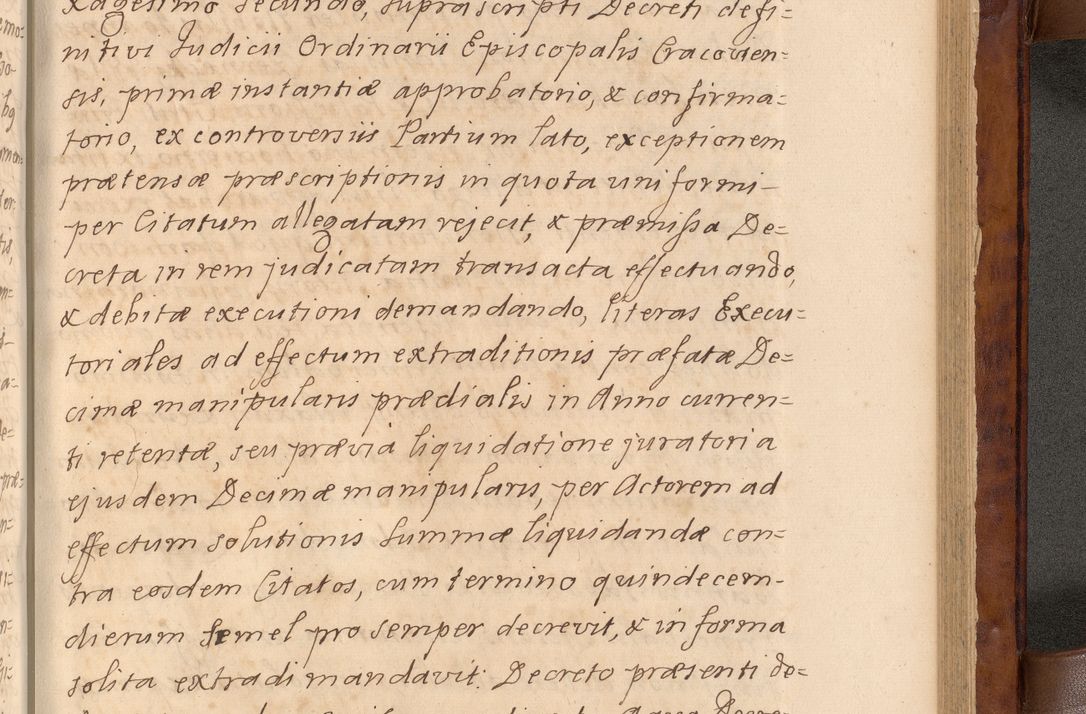 xagesimo secundo, suprascripti Decreti defi=
nitivi Judicii Ordinarii Episcopalis Cracovien=
sis, primæ instantiæ approbatorio, & confirma=
torio, ex controversiis Partium lato, exceptionem
prætensæ præscriptionis in quota uniformi-
per Citatum allegatam rejecit, & præmissa De=
creta in rem judicatam transacta effectuando,
& debitæ executioni demandando, literas Execu=
toriales ad effectum extraditionis præfatæ De=
cimæ manipularis prædialis in Anno curren=
ti retentæ, seu prævia liquidatione juratoria
ejusdem Decimæ manipularis, per Actorem ad
effectum solutionis Summæ liquidandæ con=
tra eosdem Citatos, cum termino quindecem-
dierum semel pro semper decrevit, & in forma
solita extradi mandavit: Decreto præsenti do=